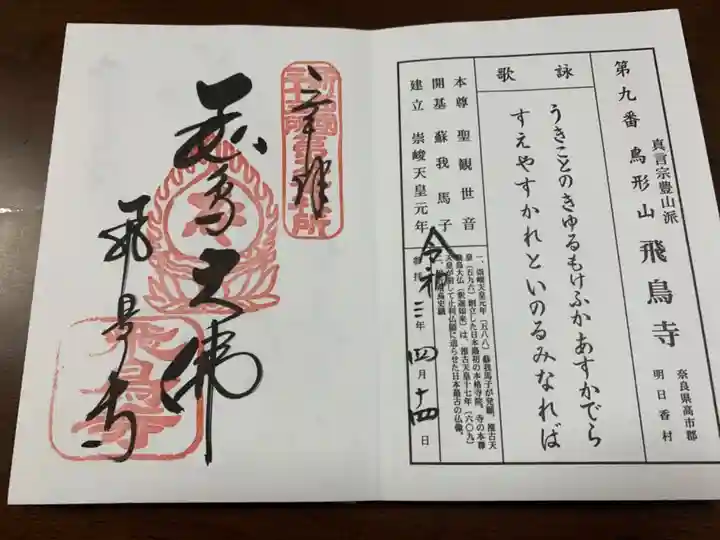 第九番 鳥形山 飛鳥寺
真言宗豊山派
奈良県高市郡
明日香村
詠歌
うきことのきゆるもけふかあすかでら
すえやすかれといのるみなれば
本尊 聖観世音
開基 蘇我馬子
建立 崇峻天皇元年
一、崇峻天皇元年（五八八）蘇我馬子が発願、推古天
皇（五九六）創立した日本最初の本格寺院。寺の本尊
飛鳥大仏（釈迦如来）は、推古天皇十七年（六〇九）
天皇が詔して止利仏師に造らせた日本最古の仏像。
令和三年四月十四日
奉拝
飛鳥大佛
飛鳥寺